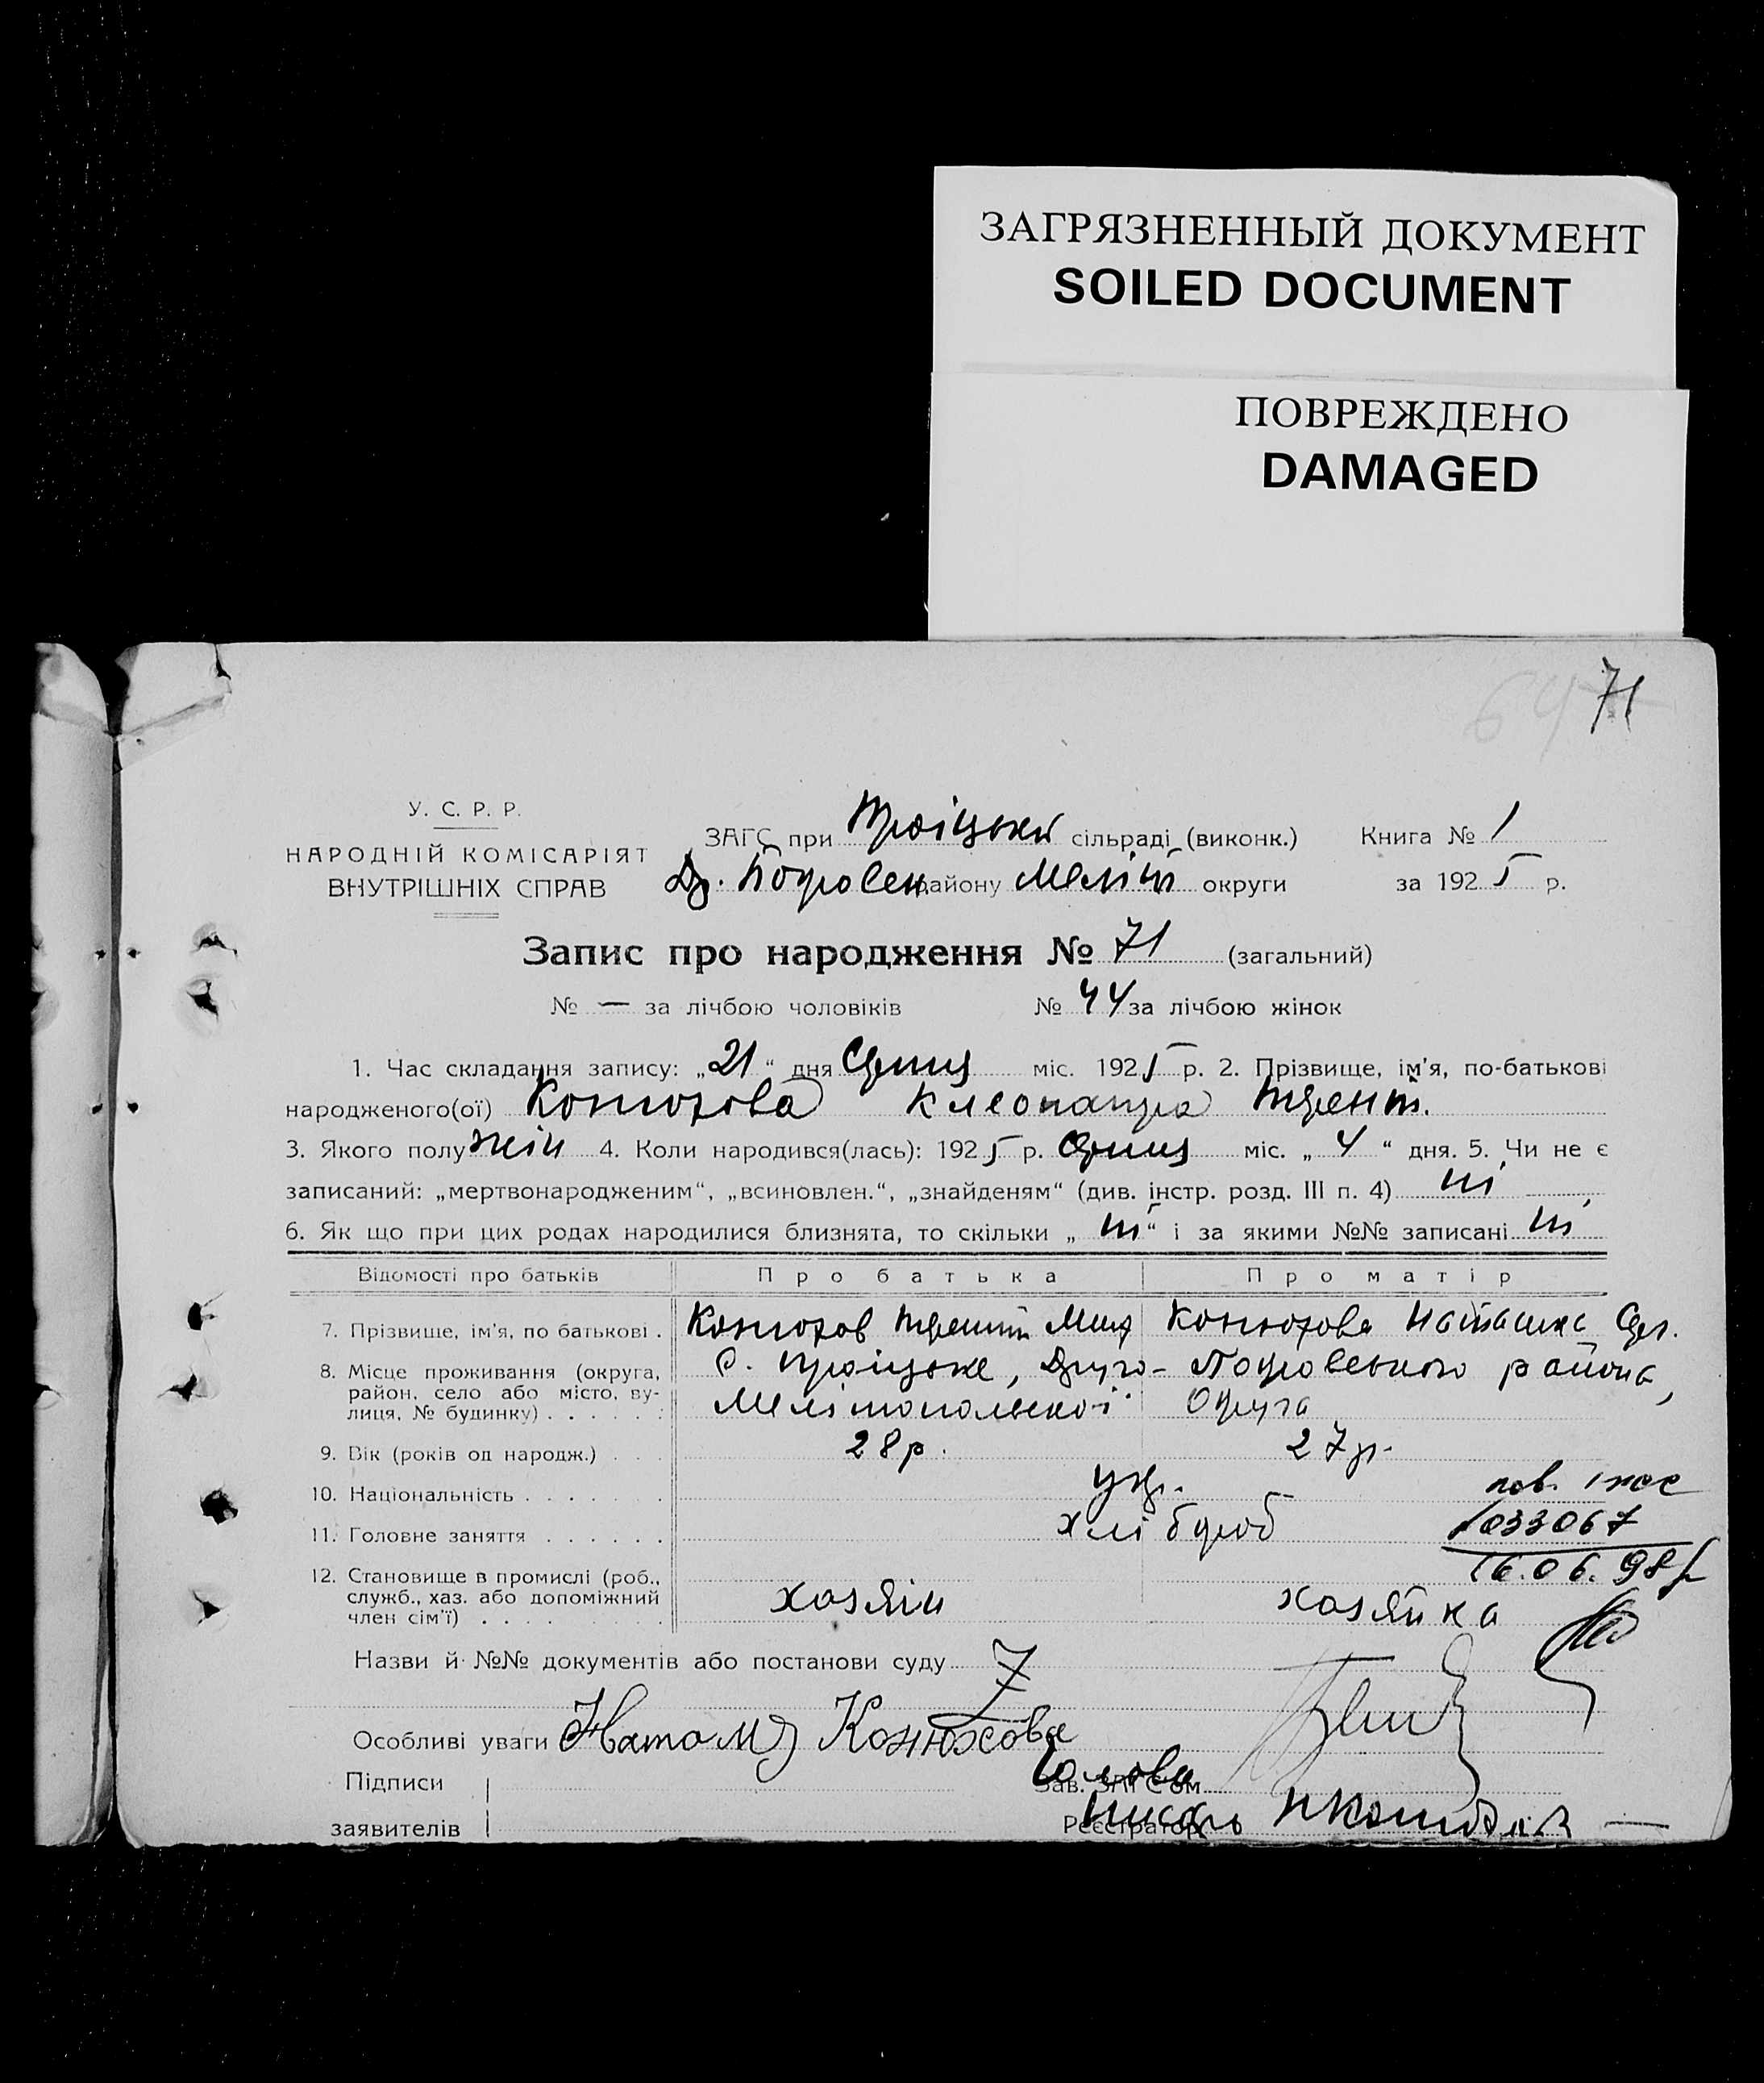 ЗАГРЯЗНЕННЫЙ ДОКУМЕНТ
SOILED DOCUMENT
ПОВРЕЖДЕНО
DAMAGED
71
У. С. Р. Р.
НАРОДНІЙ КОМІСАРІЯТ
ВНУТРІШНІХ СПРАВ
ЗАГС при Троіцькій сільраді (виконк.) Книга № 1
Др. Покровск району Меліт округи за 1925 р.
Запис про народження № 71 (загальний)
№ — за лічбою чоловіків № 44 за лічбою жінок
1. Час складання запису: „21“ дня Серпц міс. 1925 р. 2. Прізвище, ім'я, по-батькові
народженого(ої) Конюхова Клеопатра Терент.
3. Якого полу жін 4. Коли народився(лась): 1925 р. Серпц міс. „ 4 “ дня. 5. Чи не є
записаний: „мертвонародженим“, „всиновлен.“, „знайденям“ (див. інстр. розд. III п. 4) ні
6. Як що при цих родах народилися близнята, то скільки „ ні “ і за якими №№ записані ні
Відомості про батьків Про батька Про матір
7. Прізвище, ім'я, по батькові . Конюхов Терентій Мих Конюхова Наташка
8. Місце проживання (округа, район, село або місто, вулиця, № будинку) . . . . . . с. Троіцьке, Друго-Покровського района,
Мелітопольскоі Округа
9. Вік (років од народж.) . . . 28 р. 27 р.
10. Національність . . . . . . . укр. пов.
11. Головне заняття . . . . . . хлібороб 1033067
16.06.98
12. Становище в промислі (роб., служб., хаз. або допоміжний член сім'ї) . . . . хозяін хозяйка
Назви й №№ документів або постанови суду
Особливі уваги Наталія Конюхова
Підписи Голова Зав. ЗАГС'ом
заявителів Реєстратор